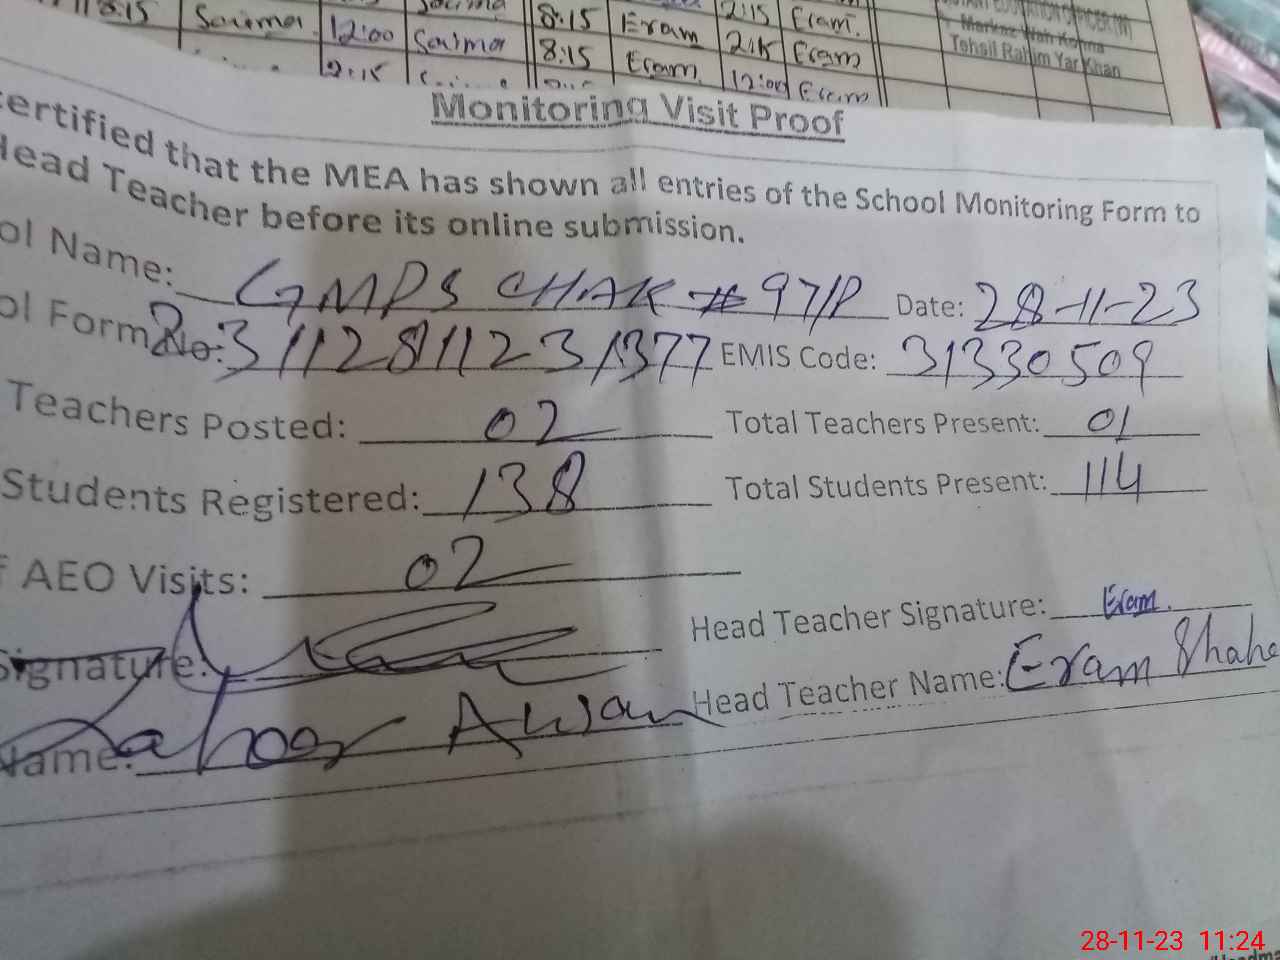 8:15 Saima 12:00 Saima 8:15 Eram 2:15 Eram.
8:15 Eram 12:00 Eram
Markaz Kotma
Tehsil Rahim Yar Khan
Monitoring Visit Proof
ertified that the MEA has shown all entries of the School Monitoring Form to
Head Teacher before its online submission.
ol Name: GMPS CHAK # 97/P Date: 28-11-23
ol Form No: EMIS Code: 31330509
Teachers Posted: 02 Total Teachers Present: 01
Students Registered: 138 Total Students Present: 114
f AEO Visits: 02
Signature: Head Teacher Signature: Eram.
Name: Awan Head Teacher Name: Eram Shahe
28-11-23 11:24